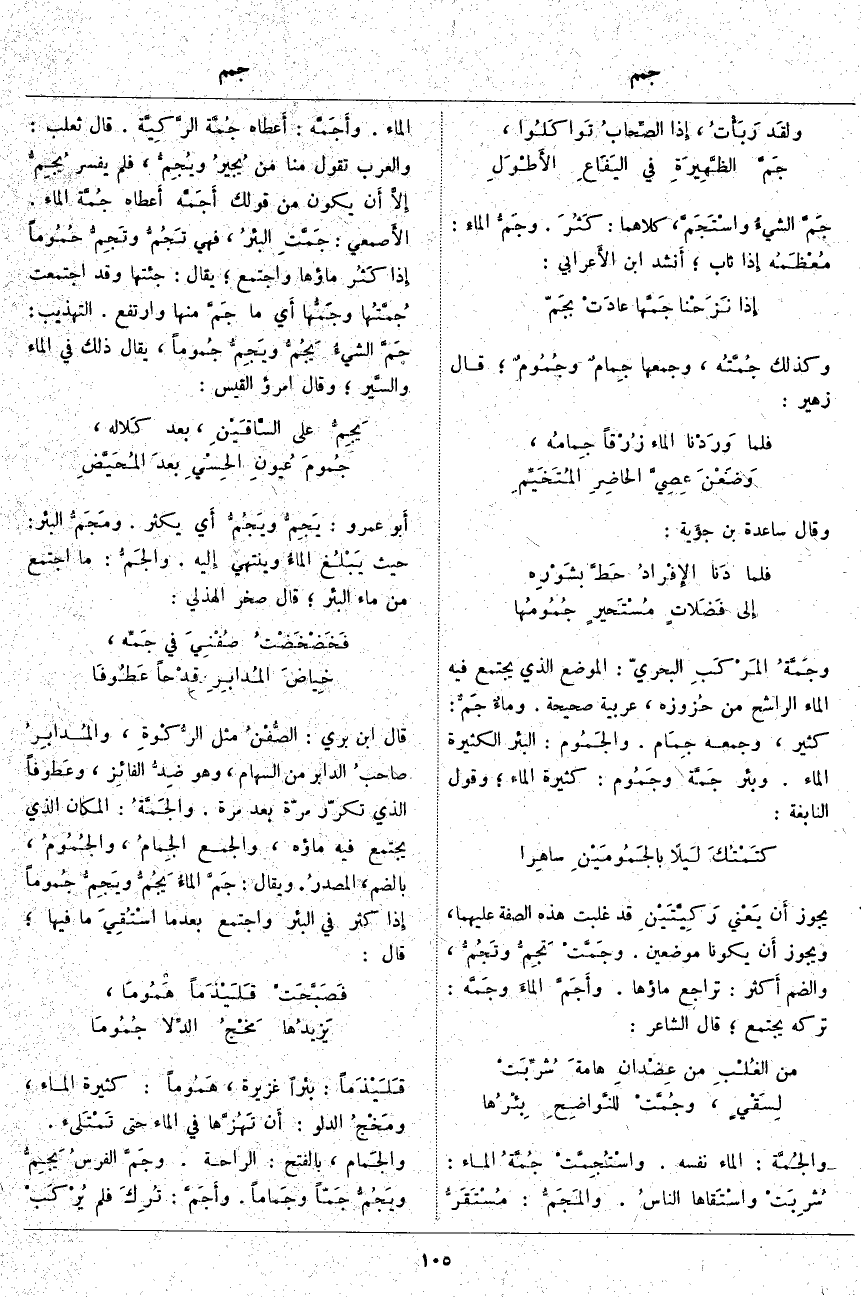 جمم
جمم
ولقَد رَبَأْتُ ، إذا الصِّحابُ تَواكَلُوا ،
جَمَّ الظَّهِيرَةِ في اليَفَاعِ الأَطْوَلِ
جَمَّ الشيءُ واسْتَجَمَّ، كلاهما : كَثُرَ . وجَمُّ الماء :
مُعْظَمُه إذا ثاب ؛ أنشد ابن الأَعرابي :
إذا نَزَحْنا جَمَّها عادَتْ بجَمّ
وكذلك جُمَّتُه ، وجمعها جِمامٌ وجُمُومٌ ؛ قال
زهير :
فلما وَرَدْنا الماء زُرْقاً جِمامُه ،
وَضَعْنَ عِصِيَّ الحاضِرِ المُتَخَيِّمِ
وقال ساعدة بن جؤية :
فلما دَنا الإفْرادُ حَطَّ بشَوْرِه
إلى فَضَلاتٍ مُسْتَحيرٍ جُمُومُها
وجَمَّةُ المَرْكَبِ البحريّ : الموضع الذي يجتمع فيه
الماء الراشح من حُزوزه ، عربية صحيحة . وماءٌ جَمٌّ :
كثير ، وجمعه جِمَام . والجَمُوم : البئر الكثيرة
الماء . وبئر جَمَّة وجَمُوم : كثيرة الماء ؛ وقول
النابغة :
كتَمْتُكَ لَيلًا بالجَمُومَيْنِ ساهِرا
يجوز أن يَعْني رَكِيَّتَيْنِ قد غلبت هذه الصفة عليهما،
ويجوز أن يكونا موضعين . وجَمَّتْ تَجِمُّ وتَجُمُّ ،
والضم أكثر : تراجع ماؤها . وأجَمَّ الماءَ وجَمَّه :
تركه يجتمع ؛ قال الشاعر :
من الغُلْبِ من عِضْدانِ هامةَ شُرِّبَتْ
لِسَقْيٍ ، وجُمَّتْ للنَّواضِحِ بِئْرُها
والجُمَّة : الماء نفسه . واسْتُجِمَّتْ جُمَّةُ الماء :
شُرِبَتْ واسْتَقاها الناسُ . والمَجَمُّ : مُسْتَقَرُّ
الماء . وأجَمَّه : أَعطاه جُمَّة الرَّكِيَّة . قال ثعلب :
والعرب تقول منا مَن يُجيرُ ويُجِمُّ ، فلم يفسر يُجِمُّ
إلاَّ أن يكون من قولك أَجَمَّه أعطاه جُمَّة الماء .
الأَصمعي : جَمَّتِ البئرُ ، فهي تَجُمُّ وتَجِمُّ جُمُوماً
إذا كَثُر ماؤها واجتمع ؛ يقال : جئتها وقد اجتمعت
جُمَّتُها وجَمُّها أي ما جَمَّ منها وارتفع . التهذيب:
جَمَّ الشيءُ يَجُمُّ ويَجِمُّ جُموماً ، يقال ذلك في الماء
والسَّير ؛ وقال امرؤ القيس :
يَجِمُّ على السَّاقَيْنِ ، بعد كَلاله ،
جُمومَ عُيونِ الحِسْيِ بعدَ المُحَيَّضِ
أبو عمرو : يَجِمُّ ويَجُمُّ أي يكثر . ومَجَمُّ البئر:
حيث يَبْلُغ الماءُ وينتهي إليه . والجَمُّ : ما اجتمع
من ماء البئر ؛ قال صخر الهذلي :
فَخَضْخَضْتُ صُفْنيَ في جَمِّه ،
خِياضَ المُدابِرِ قِدْحاً عَطُوفَا
قال ابن بري : الصُّفْنُ مثل الرَّكْوَةِ ، والمُدابِرُ
صاحبُ الدابر من السهام ، وهو ضِدُّ الفائِز ، وعَطوفاً
الذي تكرّر مرّة بعد مرة . والجَمَّةُ : المكان الذي
يجتمع فيه ماؤه ، والجمع الجِمامُ ، والجُمُومُ ،
بالضم، المصدرُ. ويقال : جَمَّ الماءُ يَجُمُّ ويَجِمُّ جُموماً
إذا كثر في البئر واجتمع بعدما اسْتُقِيَ ما فيها ؛
قال :
فَصَبَّحَتْ قَلَيْذَماً هَمُومَا ،
يَزيدُها مَخْجُ الدِّلا جُمُومَا
قَلَيْذَماً : بئراً غزيرة ، هَمُوماً : كثيرة الماء ،
ومَخْجُ الدلو : أن تَهُزَّها في الماء حتى تَمْتَلِىء .
والجَمام ، بالفتح : الراحة . وجَمَّ الفرسُ يَجِمُّ
ويَجُمُّ جَمّاً وجَماماً . وأَجَمَّ : تُرِكَ فلم يُرْكَبْ
١٠٥